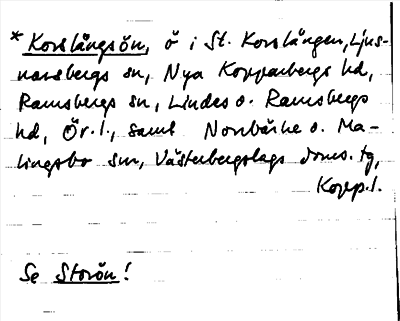 * Korslångsön, ö i St. Korslången, Ljus-
narsbergs sn, Nya Kopparbergs hd,
Ramsbergs sn, Lindes o. Ramsbergs
hd, Ör. l., samt Norrbärke o. Ma-
lingsbo snr, Västerbergslags doms. tg,
Kopp. l.
Se Storön!